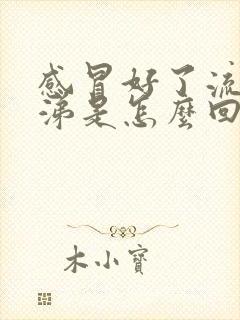 感冒好了流
涕是怎麼回
木小寶